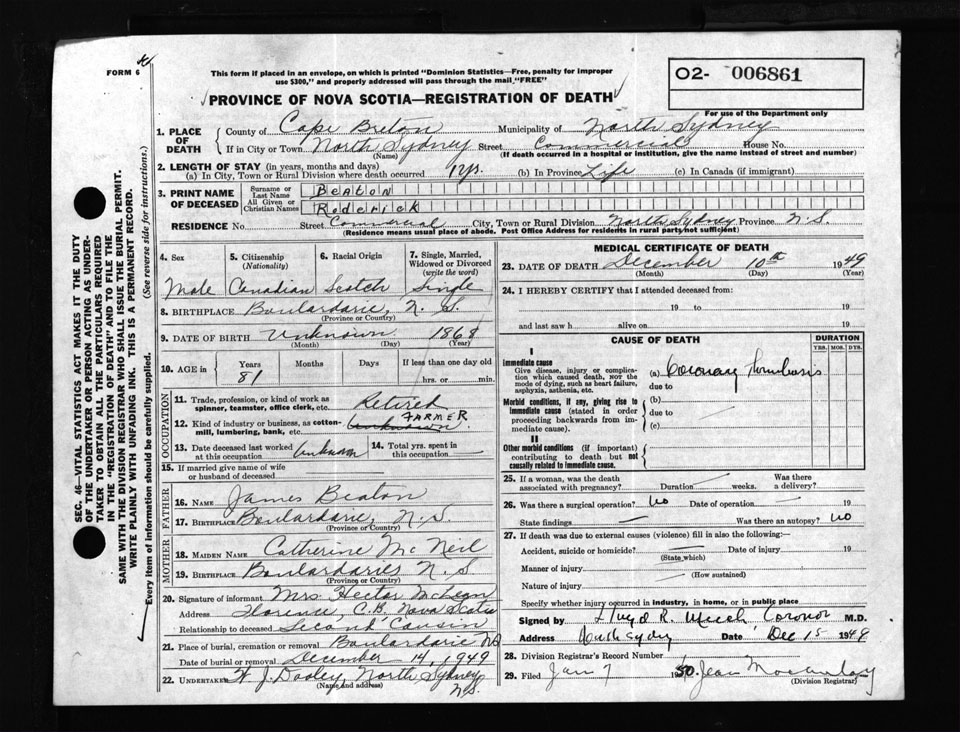 FORM 6
This form if placed in an envelope, on which is printed "Dominion Statistics—Free, penalty for improper
use $300," and properly addressed will pass through the mail "FREE"
O2- 006861
For use of the Department only
PROVINCE OF NOVA SCOTIA—REGISTRATION OF DEATH
1. PLACE OF DEATH
County of Cape Breton Municipality of North Sydney
If in City or Town North Sydney Street Commercial House No.
(Name) (If death occurred in a hospital or institution, give the name instead of street and number)
2. LENGTH OF STAY (in years, months and days)
(a) In City, Town or Rural Division where death occurred 1 yr. (b) In Province Life (c) In Canada (if immigrant)
3. PRINT NAME OF DECEASED
Surname or Last Name Beaton
All Given or Christian Names Roderick
RESIDENCE No. Street Commercial City, Town or Rural Division North Sydney Province N.S.
(Residence means usual place of abode. Post Office Address for residents in rural party not sufficient)
4. Sex Male
5. Citizenship (Nationality) Canadian
6. Racial Origin Scotch
7. Single, Married, Widowed or Divorced (write the word) Single
8. BIRTHPLACE Boulardarie, N. S.
(Province or Country)
9. DATE OF BIRTH Unknown 1868
(Month) (Day) (Year)
10. AGE in Years 81 Months Days If less than one day old
hrs. or min.
OCCUPATION
11. Trade, profession, or kind of work as
spinner, teamster, office clerk, etc. Retired
12. Kind of industry or business, as cotton-
mill, lumbering, bank, etc. Unknown FARMER
13. Date deceased last worked at this occupation Unknown
14. Total yrs. spent in this occupation
15. If married give name of wife
or husband of deceased
FATHER
16. NAME James Beaton
17. BIRTHPLACE Boulardarie, N.S.
(Province or Country)
MOTHER
18. MAIDEN NAME Catherine McNeil
19. BIRTHPLACE Boulardarie, N.S
(Province or Country)
20. Signature of informant Mrs Hector McLean
Address Florence, C.B, Nova Scotia
Relationship to deceased Second Cousin
21. Place of burial, cremation or removal Boulardarie NS
Date of burial or removal December 14, 1949
22. UNDERTAKER W. J. Dooley, North Sydney
(Name and address) N.S.
MEDICAL CERTIFICATE OF DEATH
23. DATE OF DEATH December 10th 1949
(Month) (Day) (Year)
24. I HEREBY CERTIFY that I attended deceased from:
19 to 19
and last saw h alive on 19
CAUSE OF DEATH DURATION
YRS. MOS. DYS.
I
Immediate cause
Give disease, injury or complica-
tion which caused death, NOT the
mode of dying, such as heart failure,
asphyxia, asthenia, etc.
(a) Coronary thrombosis
due to
Morbid conditions, if any, giving rise to
immediate cause (stated in order
proceeding backwards from im-
mediate cause).
(b)
due to
(c)
II
Other morbid conditions (if important)
contributing to death but not
causally related to immediate cause.
25. If a woman, was the death
associated with pregnancy? Duration weeks. Was there a delivery?
26. Was there a surgical operation? No Date of operation 19
State findings Was there an autopsy? No
27. If death was due to external causes (violence) fill in also the following:
Accident, suicide or homicide? Date of injury 19
(State which)
Manner of injury
(How sustained)
Nature of injury
Specify whether injury occurred in industry, in home, or in public place
Signed by Coronor M.D.
Address North Sydney Date Dec 15 1949
28. Division Registrar's Record Number
29. Filed Jan 7 1950. Jean
(Division Registrar)
SEC. 46—VITAL STATISTICS ACT MAKES IT THE DUTY
OF THE UNDERTAKER OR PERSON ACTING AS UNDER-
TAKER TO OBTAIN ALL THE PARTICULARS REQUIRED
IN THE "REGISTRATION OF DEATH" AND TO FILE THE
SAME WITH THE DIVISION REGISTRAR WHO SHALL ISSUE THE BURIAL PERMIT.
WRITE PLAINLY WITH UNFADING INK. THIS IS A PERMANENT RECORD.
Every item of information should be carefully supplied. (See reverse side for instructions.)